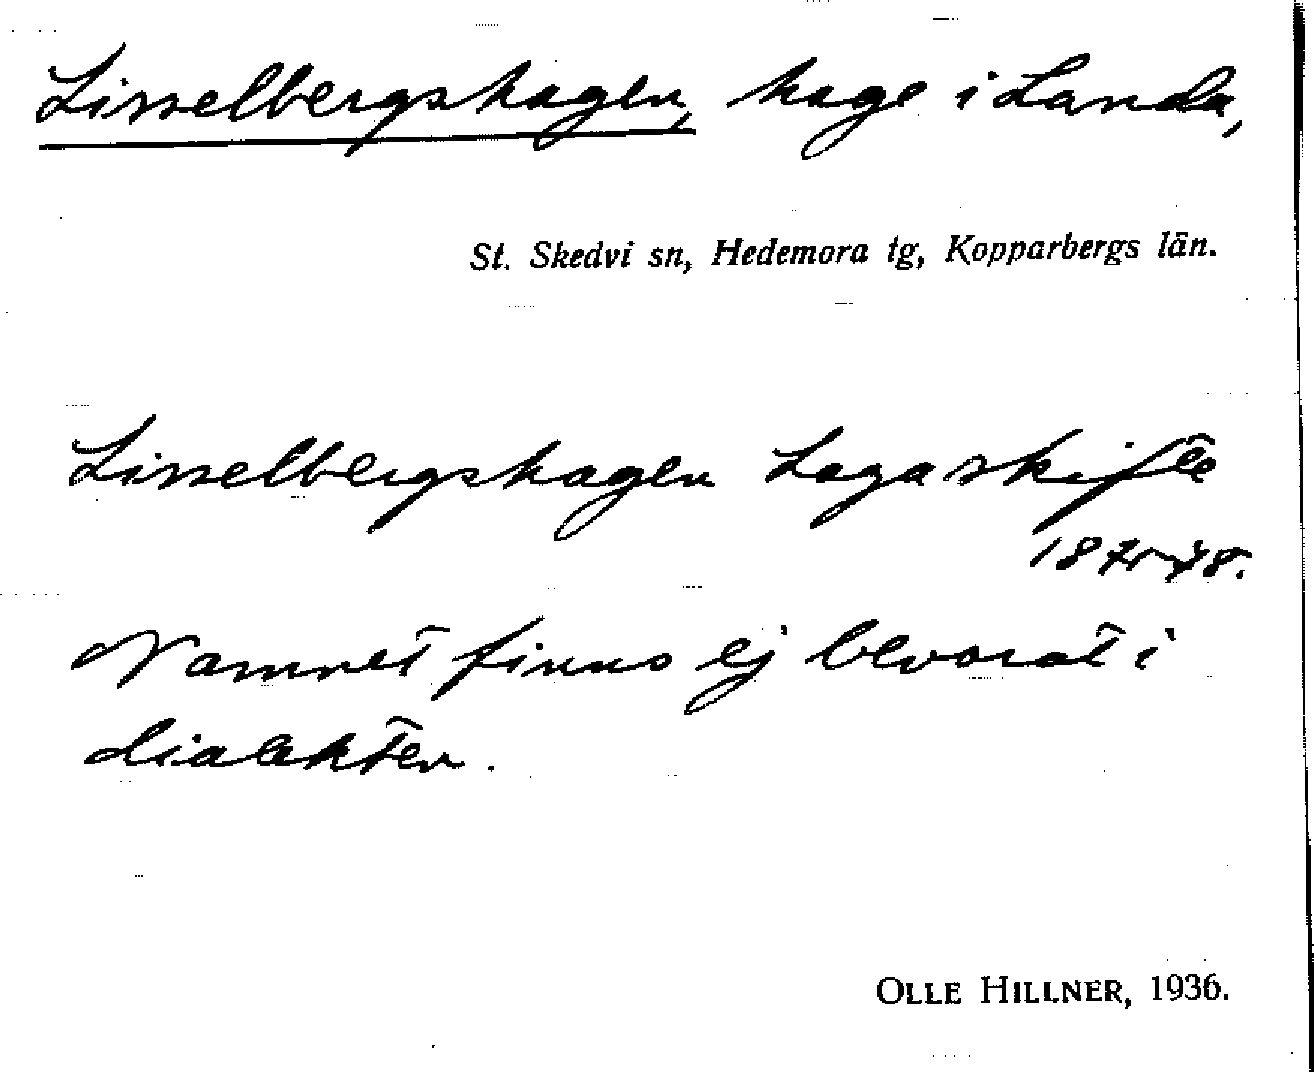 Lisselbergshagen, hage i Landa,
St. Skedvi sn, Hedemora tg, Kopparbergs län.
Lisselbergshagen Lagaskifte
Namnet finns ej bevarat i
dialekten.
OLLE HILLNER, 1936.